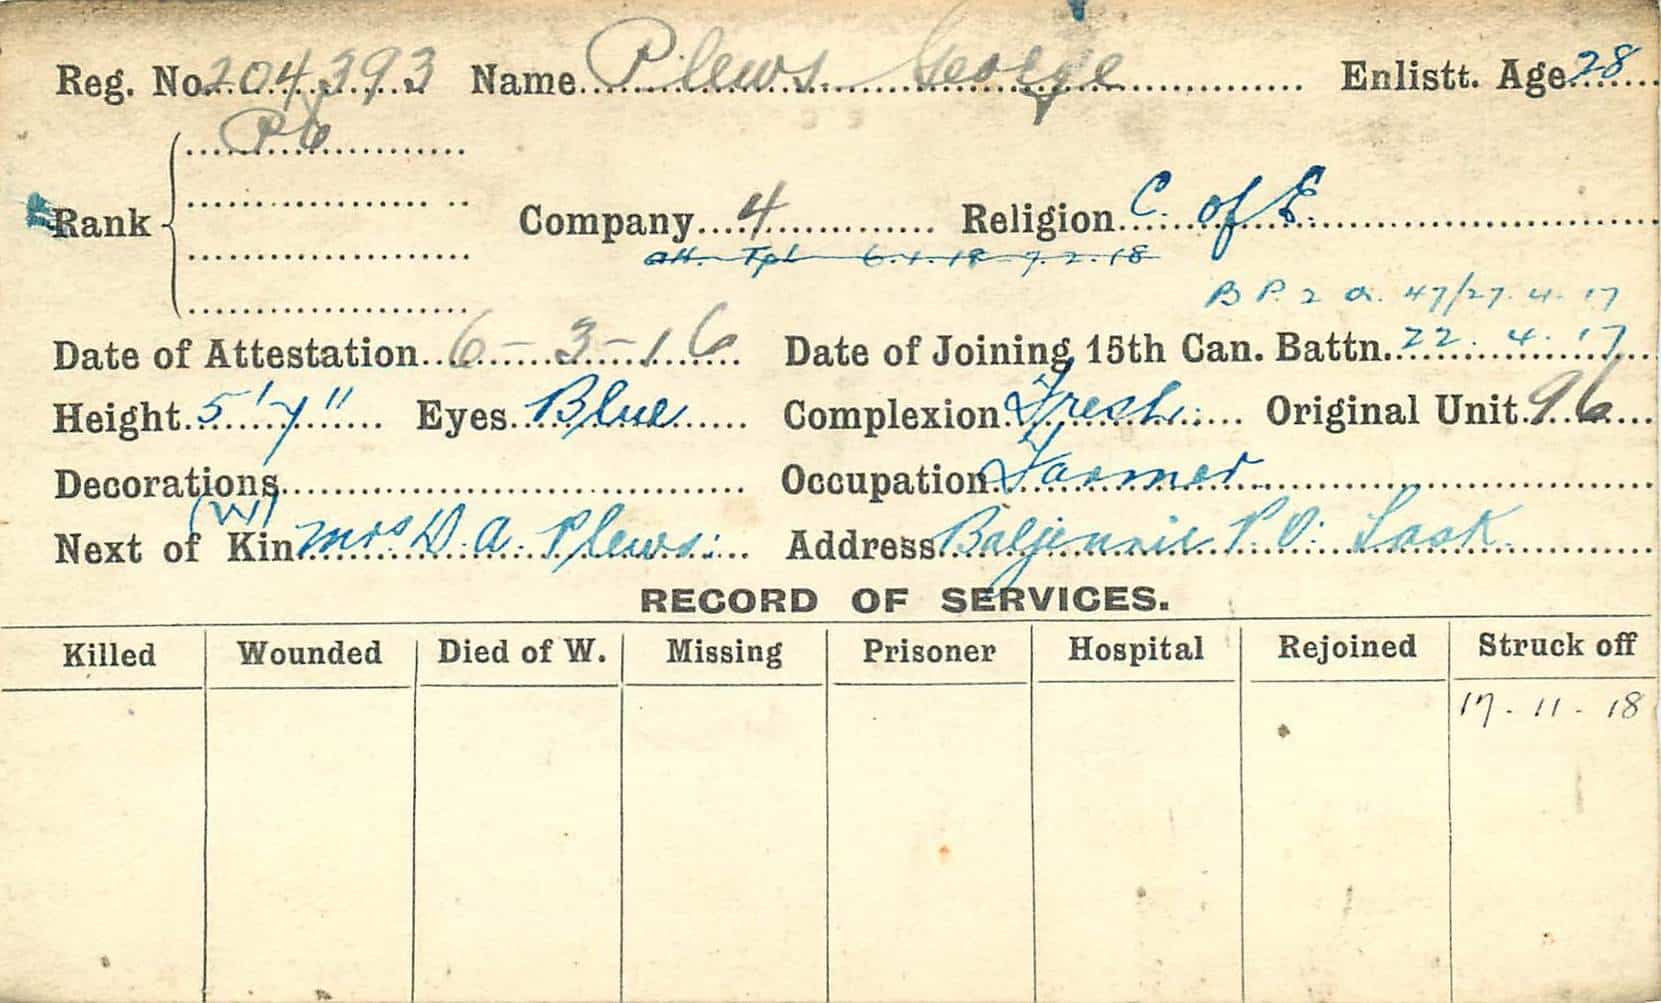 Reg. No. 204393 Name Plews George Enlistt. Age 28
Rank Pte
Company 4 Religion C. of E.
att. Tpt 6.1.18 9.2.18
B P. 2 O. 47/27.4.17
Date of Attestation 6-3-16 Date of Joining 15th Can. Battn. 22.4.17
Height 5'7" Eyes Blue Complexion Fresh. Original Unit 96
Decorations Occupation Farmer
(W)
Next of Kin Mrs D. A. Plews. Address Baljennie P.O. Sask.
RECORD OF SERVICES.
Killed Wounded Died of W. Missing Prisoner Hospital Rejoined Struck off
17-11-18